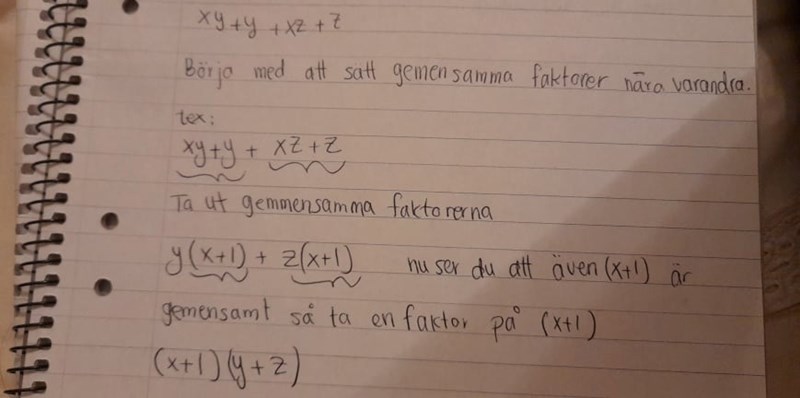 xy+y+xz+z
Börja med att satt gemensamma faktorer nära varandra.
tex:
xy+y + xz+z
Ta ut gemmensamma faktorerna
y(x+1) + z(x+1) nu ser du att även (x+1) är
gemensamt så ta en faktor på (x+1)
(x+1)(y+z)